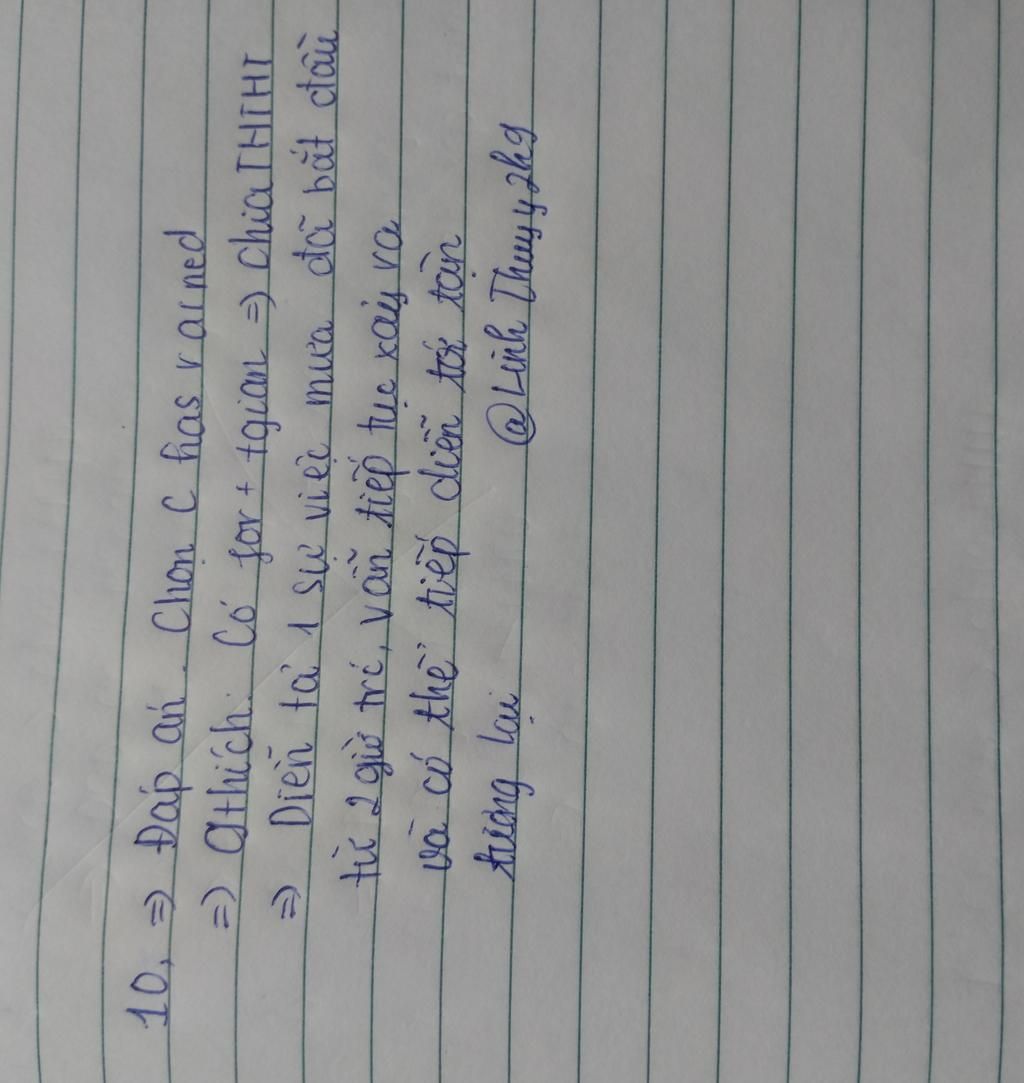 10, => Đáp án. Chọn C has rained
=> Gthích: Có for + tgian => chia THTHT
=> Diễn tả 1 sự việc mưa đã bắt đầu
từ 2 giờ trc, vẫn tiếp tục xảy ra
và có thể tiếp diễn tới tận
tương lai
@LinhThuyy2hg